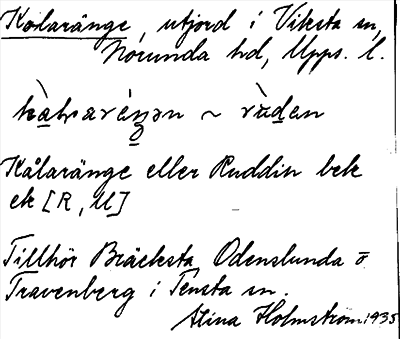 Kolaränge, utjord i Viksta sn,
Norunda hd, Upps. l.
~ rù̀den
Kålaränge eller Ruddin bek
ek [R, U]
Tillhör Bräcksta, Odenslunda o
Travenberg i Tensta sn.
Stina Holmström 1935